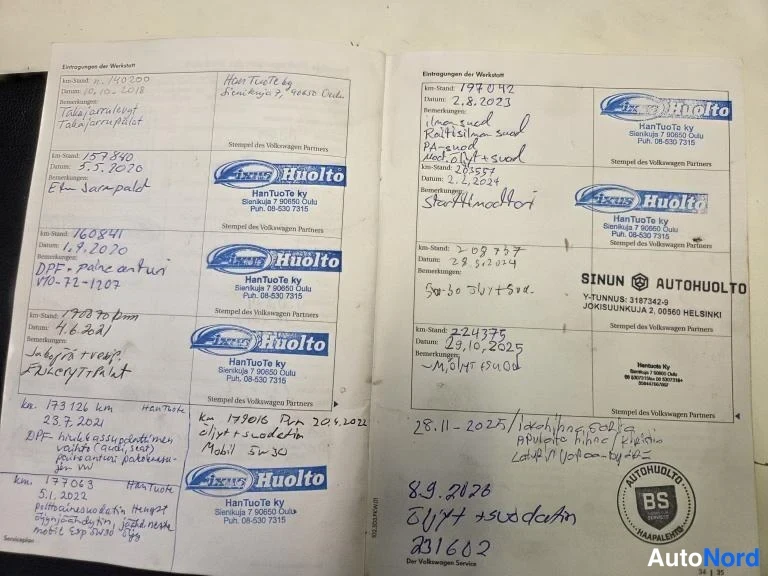 Eintragungen der Werkstatt
km-Stand: n. 140200
Datum: 10.10-2018
Bemerkungen:
Takajarrulevyt
Takajarrupalat
HanTuoTe ky
Sienikuja 7, 90650 Oulu
Stempel des Volkswagen Partners
km-Stand: 157840
Datum: 5.5.2020
Bemerkungen:
Etu Jarrupalat
Fixus Huolto
HanTuoTe ky
Sienikuja 7 90650 Oulu
Puh. 08-530 7315
Stempel des Volkswagen Partners
km-Stand: 160841
Datum: 1.9.2020
Bemerkungen:
DPF-paine anturi
V10-72-1207
Fixus Huolto
HanTuoTe ky
Sienikuja 7 90650 Oulu
Puh. 08-530 7315
Stempel des Volkswagen Partners
km-Stand:
Datum: 4.6.2021
Bemerkungen:
Fixus Huolto
HanTuoTe ky
Sienikuja 7 90650 Oulu
Puh. 08-530 7315
Stempel des Volkswagen Partners
km. 173126 km HanTuote
23.7.2021
DPF-hiukkassuodattimen
vaihto (audi, seat)
km 179016 Pvm 20.4.2022
öljyt + suodatin
Mobil 5w30
km. 177063 HanTuote
5.1.2022
polttoainesuodatin Hengst
öljynjäähdytin, jäähd.neste
mobil Esp 5w30 öljy
Fixus Huolto
HanTuoTe ky
Sienikuja 7 90650 Oulu
Puh. 08-530 7315
Serviceplan
Eintragungen der Werkstatt
km-Stand: 197042
Datum: 2.8.2023
Bemerkungen:
ilmansuod
Raitisilman suod
PA-suod
Moot.öljyt+suod
Fixus Huolto
HanTuoTe ky
Sienikuja 7 90650 Oulu
Puh. 08-530 7315
Stempel des Volkswagen Partners
km-Stand: 203557
Datum: 2.2.2024
Bemerkungen:
Starttimoottori
Fixus Huolto
HanTuoTe ky
Sienikuja 7 90650 Oulu
Puh. 08-530 7315
Stempel des Volkswagen Partners
km-Stand: 208737
Datum: 28.5.2024
Bemerkungen:
5w-30 Öljyt+Suod.
SINUN AUTOHUOLTO
Y-TUNNUS: 3187342-9
JOKISUUNKUJA 2, 00560 HELSINKI
Stempel des Volkswagen Partners
km-Stand: 224375
Datum: 29.10.2025
Bemerkungen:
M.ÖLJYT+SUOD
Hantuote ky
Sienikuja 7 90650 Oulu
Stempel des Volkswagen Partners
28.11-2025/
8.9.2026
Öljyt + suodatin
231602
AUTOHUOLTO
BS
HAAPALEHTO
Der Volkswagen Service
34 | 35
102.5S3.PKW.01
AutoNord